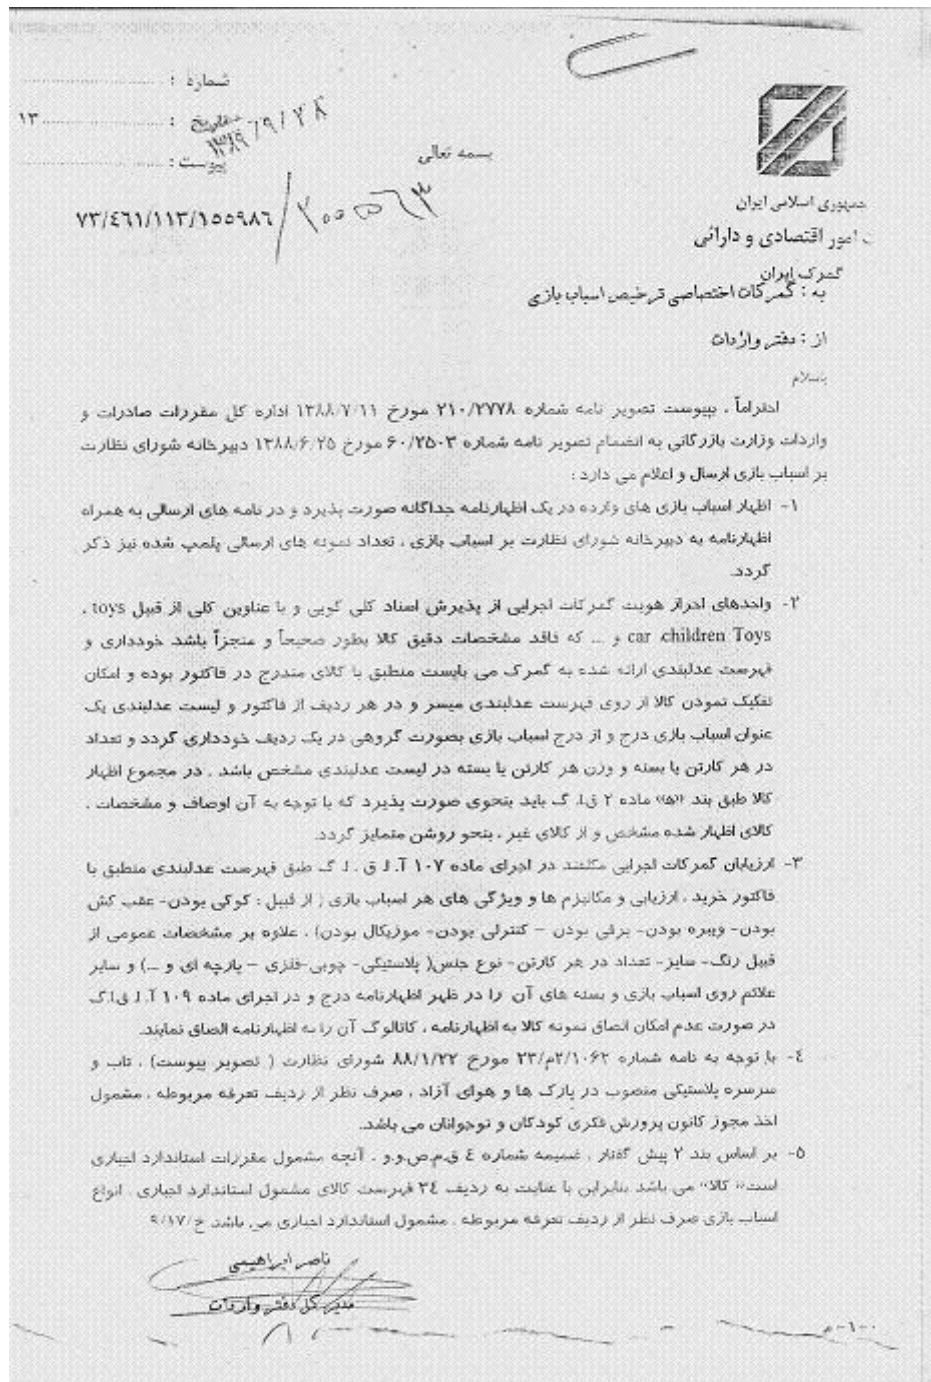 شماره :
تاریخ : ۱۳
۱۳۸۹/۹/۲۸
پیوست :
بسمه تعالی
۷۳/٤٦۱/۱۱۳/۱۵۵۹۸٦/۲۰۰۵۶۳
جمهوری اسلامی ایران
امور اقتصادی و دارائی
گمرک ایران
به : گمرکات اختصاصی ترخیص اسباب بازی
از : دفتر واردات
باسلام
احتراماً ، بپیوست تصویر نامه شماره ۲۱۰/۲۷۷۸ مورخ ۱۳۸۸/۷/۱۱ اداره کل مقررات صادرات و
واردات وزارت بازرگانی به انضمام تصویر نامه شماره ۶۰/۲۵۰۳ مورخ ۱۳۸۸/۶/۲۵ دبیرخانه شورای نظارت
بر اسباب بازی ارسال و اعلام می دارد :
۱- اظهار اسباب بازی های وارده در یک اظهارنامه جداگانه صورت پذیرد و در نامه های ارسالی به همراه
اظهارنامه به دبیرخانه شورای نظارت بر اسباب بازی ، تعداد نمونه های ارسالی پلمپ شده نیز ذکر
گردد.
۲- واحدهای احراز هویت گمرکات اجرایی از پذیرش اسناد کلی گویی و با عناوین کلی از قبیل toys ،
car children Toys و ... که فاقد مشخصات دقیق کالا بطور صحیحاً و منجزاً باشد خودداری و
فهرست عدلبندی ارائه شده به گمرک می بایست منطبق با کالای مندرج در فاکتور بوده و امکان
تفکیک نمودن کالا از روی فهرست عدلبندی میسر و در هر ردیف از فاکتور و لیست عدلبندی یک
عنوان اسباب بازی درج و از درج اسباب بازی بصورت گروهی در یک ردیف خودداری گردد و تعداد
در هر کارتن یا بسته و وزن هر کارتن یا بسته در لیست عدلبندی مشخص باشد . در مجموع اظهار
کالا طبق بند «ه» ماده ۲ ق.ا. گ باید بنحوی صورت پذیرد که با توجه به آن اوصاف و مشخصات ،
کالای اظهار شده مشخص و از کالای غیر ، بنحو روشن متمایز گردد.
۳- ارزیابان گمرکات اجرایی مکلفند در اجرای ماده ۱۰۷ آ. ا. ق . ا. گ طبق فهرست عدلبندی منطبق با
فاکتور خرید ، ارزیابی و مکانیزم ها و ویژگی های هر اسباب بازی ( از قبیل : کوکی بودن- عقب کش
بودن- ویبره بودن- برقی بودن – کنترلی بودن- موزیکال بودن) ، علاوه بر مشخصات عمومی از
قبیل رنگ- سایز- تعداد در هر کارتن- نوع جنس( پلاستیکی- چوبی-فلزی – پارچه ای و ...) و سایر
علائم روی اسباب بازی و بسته های آن را در ظهر اظهارنامه درج و در اجرای ماده ۱۰۹ آ. ا. ق.ا.گ
در صورت عدم امکان الصاق نمونه کالا به اظهارنامه ، کاتالوگ آن را به اظهارنامه الصاق نمایند.
٤- با توجه به نامه شماره ۲/۱۰۶۲/م/۲۳ مورخ ۸۸/۱/۲۲ شورای نظارت ( تصویر پیوست) ، تاب و
سرسره پلاستیکی منصوب در پارک ها و هوای آزاد ، صرف نظر از ردیف تعرفه مربوطه ، مشمول
اخذ مجوز کانون پرورش فکری کودکان و نوجوانان می باشد.
۵- بر اساس بند ۲ پیش گفتار ، ضمیمه شماره ٤ ق.م.ص.و.و . آنچه مشمول مقررات استاندارد اجباری
است« کالا» می باشد بنابراین با عنایت به ردیف ۳٤ فهرست کالای مشمول استاندارد اجباری ، انواع
اسباب بازی صرف نظر از ردیف تعرفه مربوطه ، مشمول استاندارد اجباری می باشد. خ/۹/۱۷
ناصر ابراهیمی
مدیر کل دفتر واردات